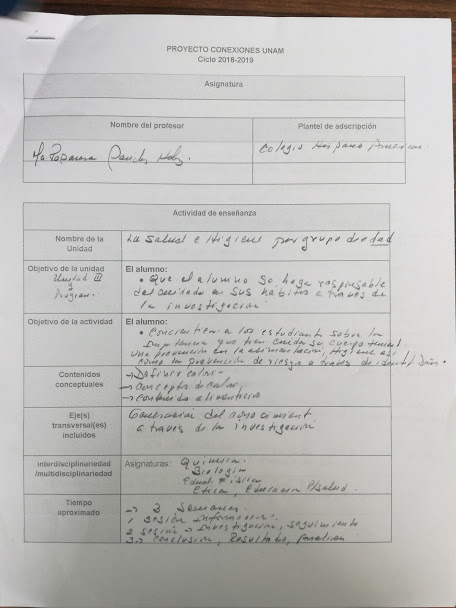 PROYECTO CONEXIONES UNAM
Ciclo 2018-2019
Asignatura
Nombre del profesor
Plantel de adscripción
Colegio Hispano American
Actividad de enseñanza
Nombre de la Unidad
La Salud e Higiene por grupo de edad
Objetivo de la unidad
Unidad III
y
Program.
El alumno:
• Que el alumno se haga responsable
del cuidado en sus hábitos a través de
la investigación.
Objetivo de la actividad
El alumno:
a los estudiant sobre la
importancia que tien cuidar su cuerpo
Una prevención en la alimentación, Higiene así
como la prevención de riesgo a través de
Contenidos conceptuales
→ Definir calor
→ Concepto de calor,
→ contenido alimenticio
Eje(s) transversal(es) incluidos
del conocimient
a través de la investigación
Interdisciplinariedad /multidisciplinariedad
Asignaturas: Química.
Biología
Educ. Física
Etica, Educacion P/Salud.
Tiempo aproximado
→ 3 Semanas.
1 Sesión Informacion.
2 sesión → Investigación, seguimiento
3 → Conclusion, Resultado,